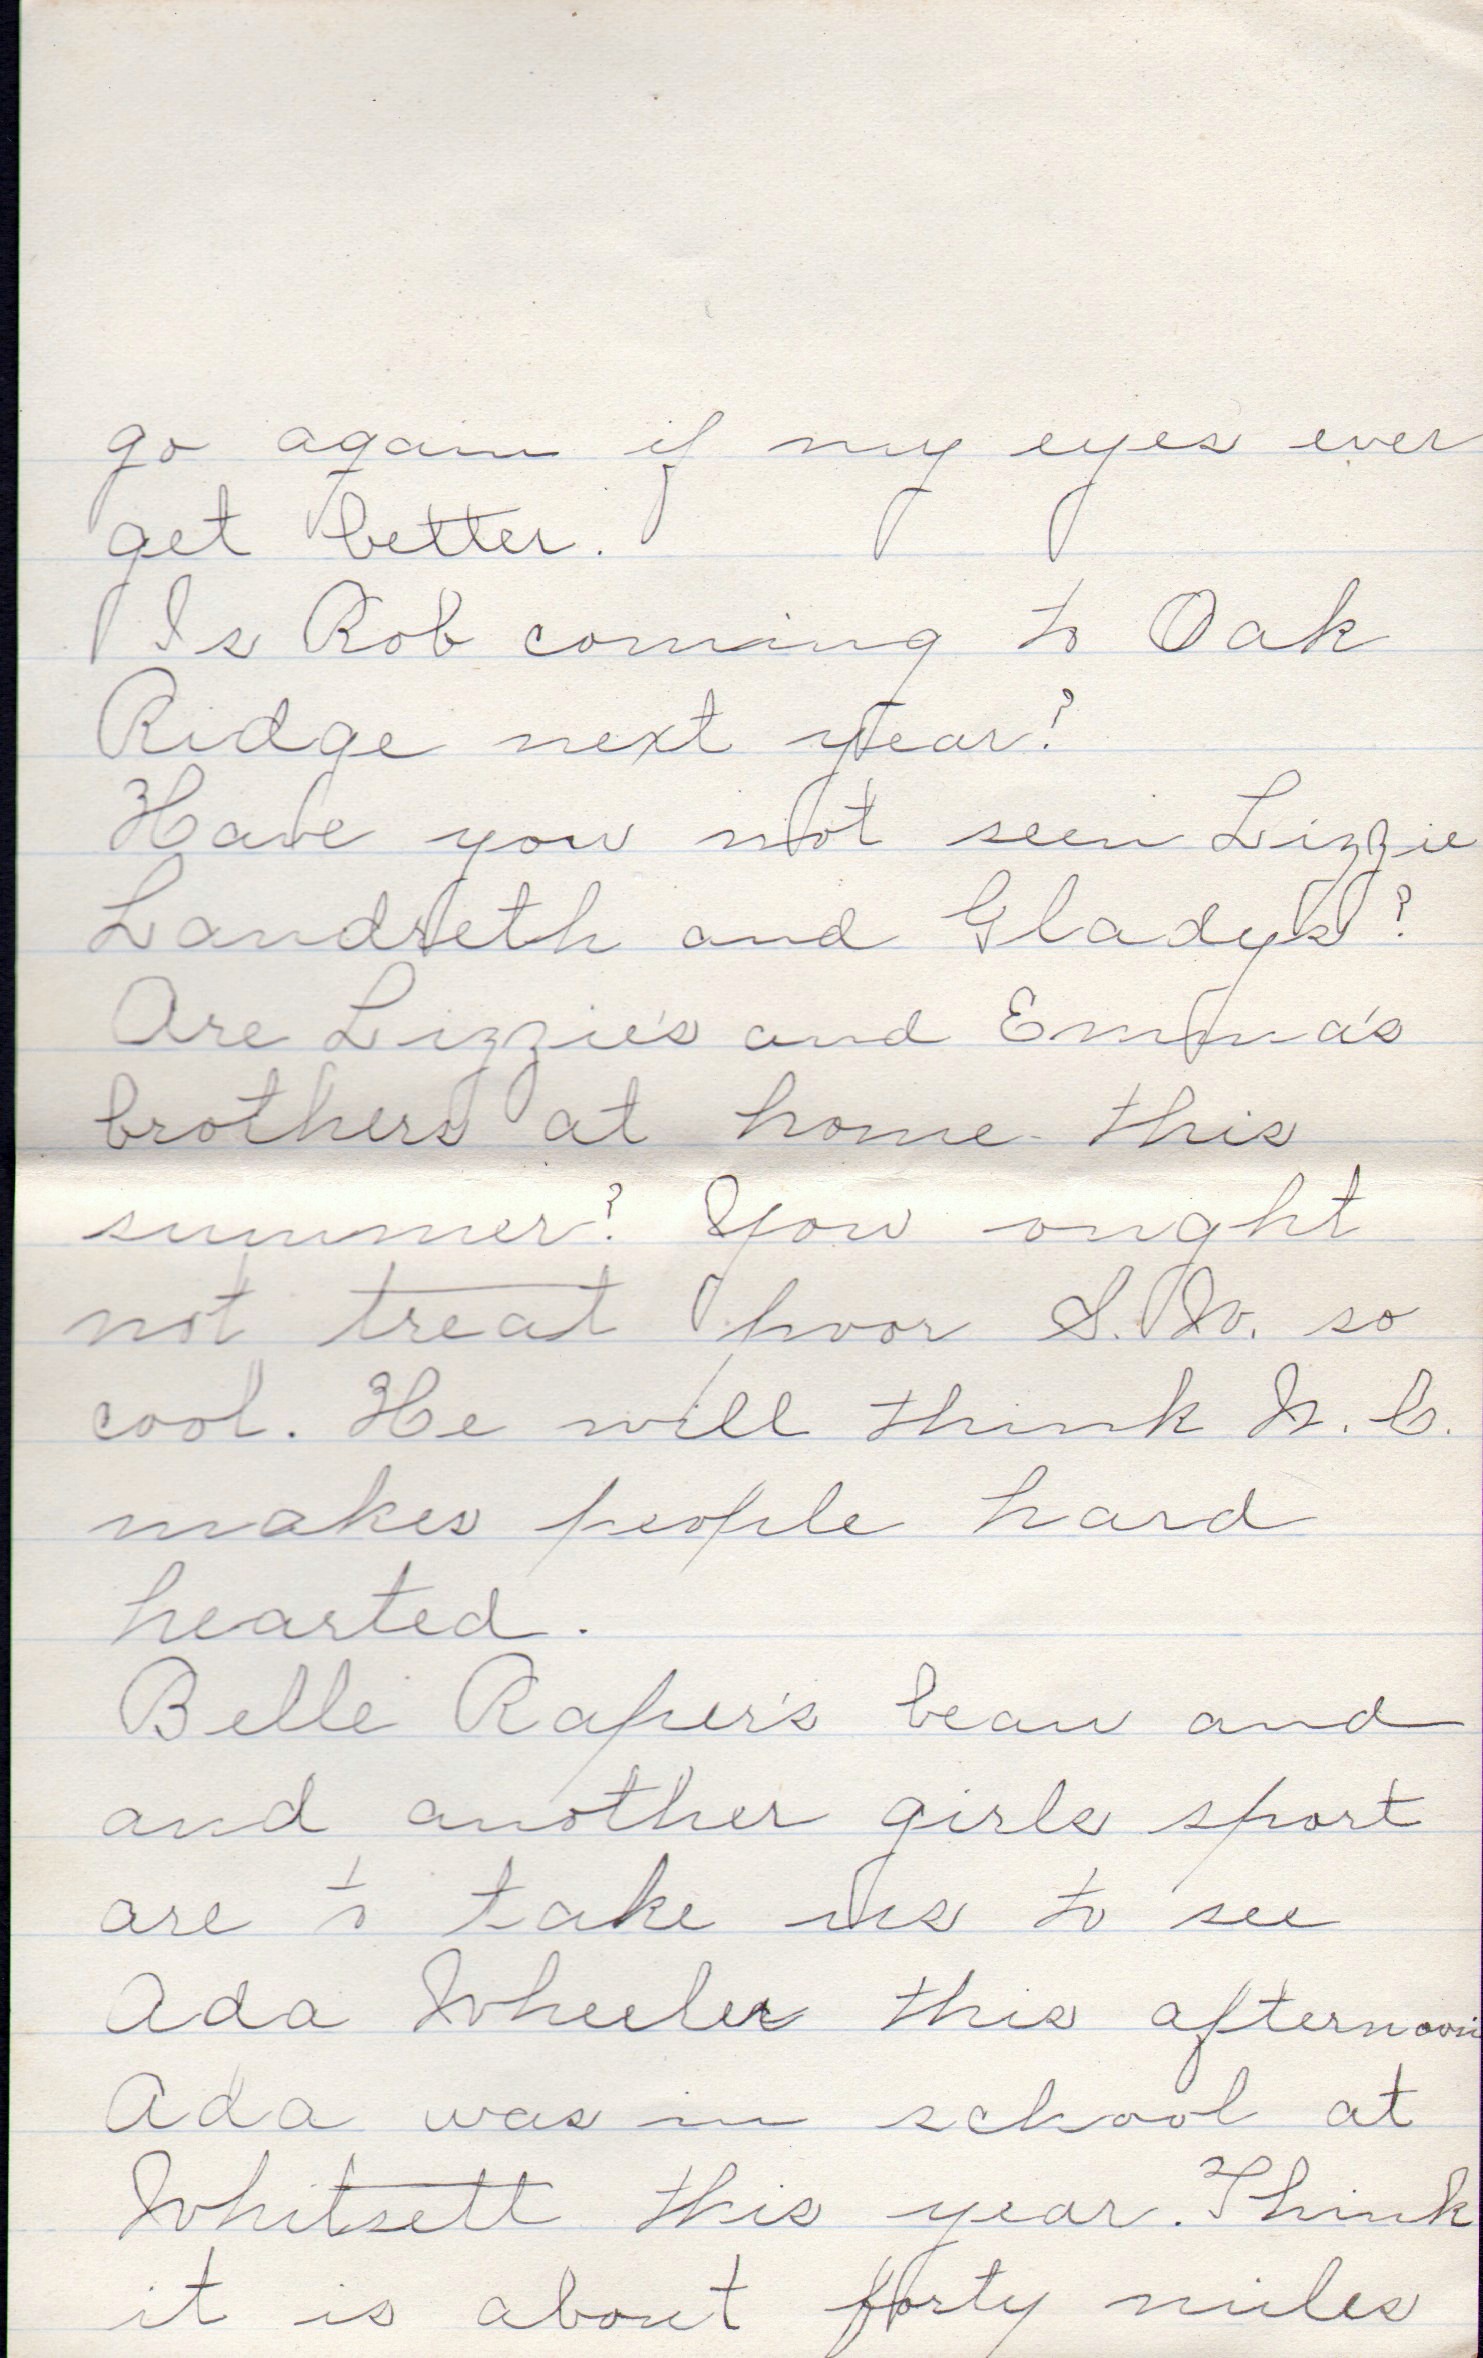 go again if my eyes ever
get better.
Is Rob coming to Oak
Ridge next year?
Have you not seen Lizzie
Landreth and Gladys?
Are Lizzie's and Emma's
brothers at home this
summer? You ought
not treat poor S. W. so
cool. He will think N. C.
makes people hard
hearted.
Belle Raper's beau and
and another girls sport
are to take us to see
Ada Wheeler this afternoon
Ada was in school at
Whitsett this year. Think
it is about forty miles